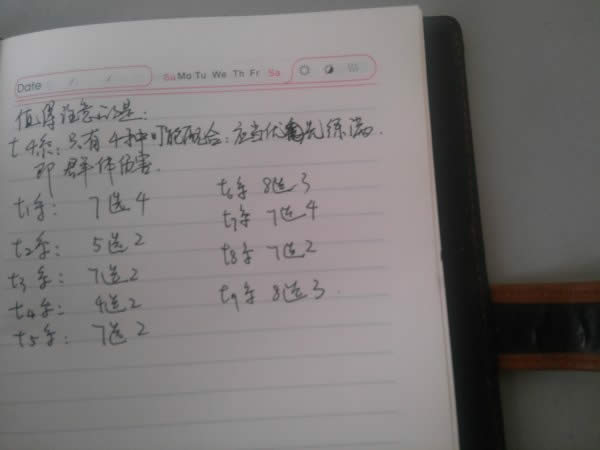 Date / /
Su Mo Tu We Th Fr Sa
值得注意的是:
t4系: 只有4种可能配合: 应当优先练满.
即 群体伤害.
t1系: 7选4
t2系: 5选2
t3系: 7选2
t4系: 4选2
t5系: 7选2
t6系 8选3
t7系 7选4
t8系 7选2
t9系 8选3.